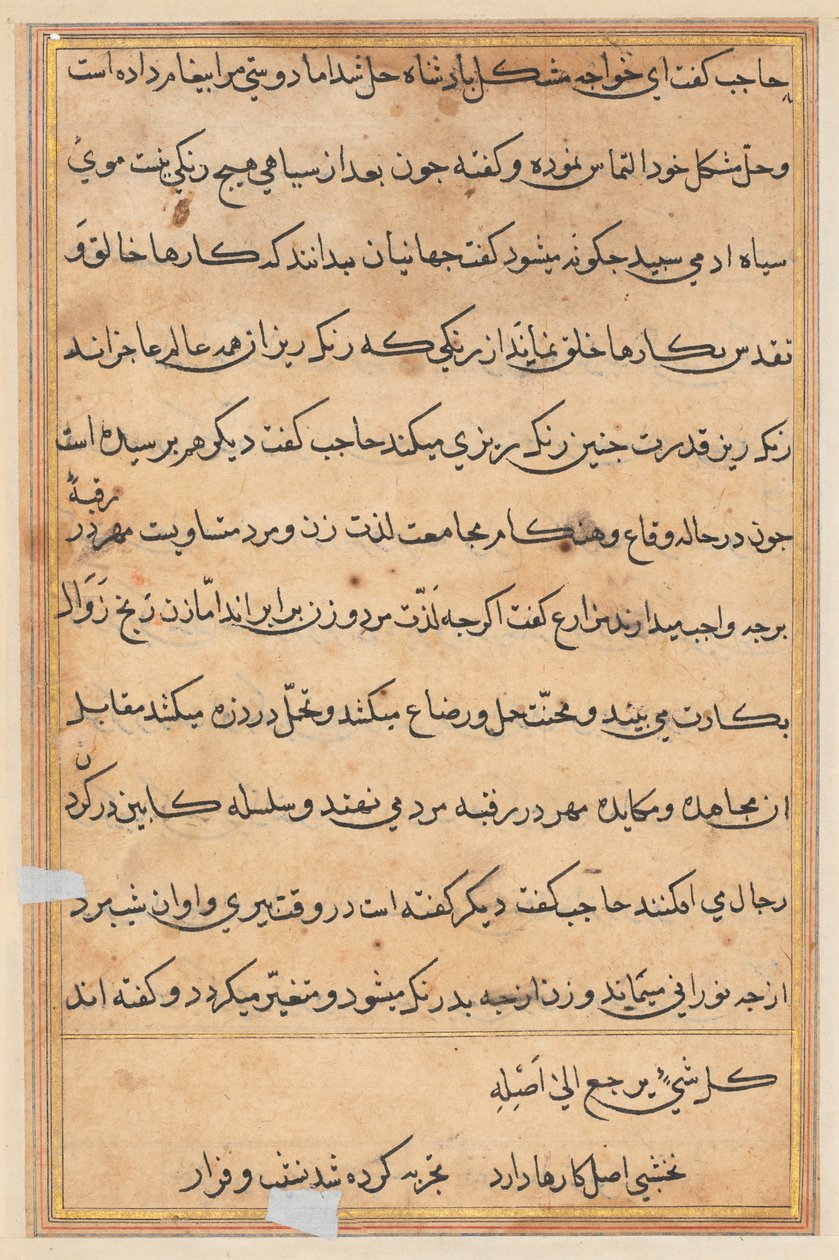 حاجب کفت ای خواجه مشکل بادشاه حل شد اما دوستی مرا بیغام داده است
و حلّ مشکل خود التماس نموده و کفته جون بعد از سیاهی هیج رنکی نیست موئ
سیاه ادمی سبید جکونه میشود کفت جهانیان بدانند که کارها خالق وَ
تقدس بکارها خلق نماند از رنکی که رنک ریزان همه عالم عاجزاند
رنک ریز قدرت جنین رنک ریزی میکند حاجب کفت دیکر هم برسیده است
جون در حاله وقاع و هنکام مجامعت لذت زن و مرد متساویست مهر در رقبهٔ
برجه واجب میدارند مزارع کفت اکرجه لَذّت مرد و زن برابر اند امّا زن رنج زَوَال
بکارت می بیند و محنّت حمل و رضاع میکشد و تحمّل درد زه میکشد مقابل
ان مجاهده و مکایده مهر در رقبه مرد می نهند و سلسله کابین در کردن
رجال می افکنند حاجب کفت دیکر کفته است در وقت بیری و اوان شیب مرد
ازجه نورانی میماند و زن ازجه بدرنک میشود و متغیّر میکردد و کفته اند
کل شیءٍ یرجع الیٰ اَصْلِهِ
نخشبی اصل کارها دارد تجربه کرده شد نشیب و فراز